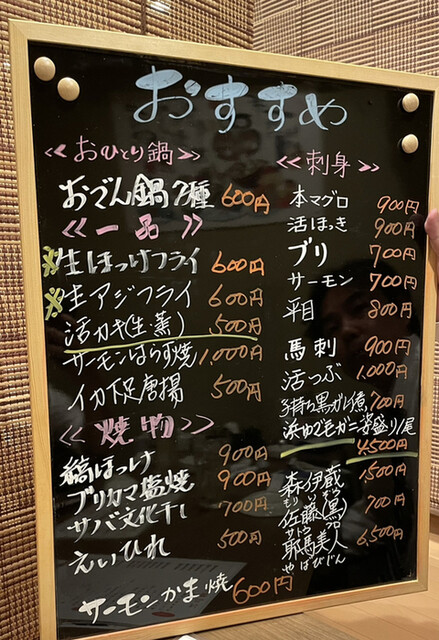 おすすめ
<<おひとり鍋>>
おでん鍋7種 600円
<<一品>>
生ほっけフライ 600円
生アジフライ 600円
活カキ(生・蒸) 500円
サーモンはらす焼 1,000円
イカ下足唐揚 500円
<<焼物>>
縞ほっけ 900円
ブリカマ塩焼 900円
サバ文化干し 700円
えいひれ 500円
サーモンかま焼 600円
<<刺身>>
本マグロ 900円
活ほっき 900円
ブリ 700円
サーモン 700円
平目 800円
馬刺 900円
活つぶ 1,000円
子持ち黒ガレイ煮 700円
浜ゆで毛ガニ姿盛り1尾
4,500円
森伊蔵 1,500円
もりいぞう
佐藤(黒) 700円
サトウ クロ
耶馬美人 6,500円
やばびじん